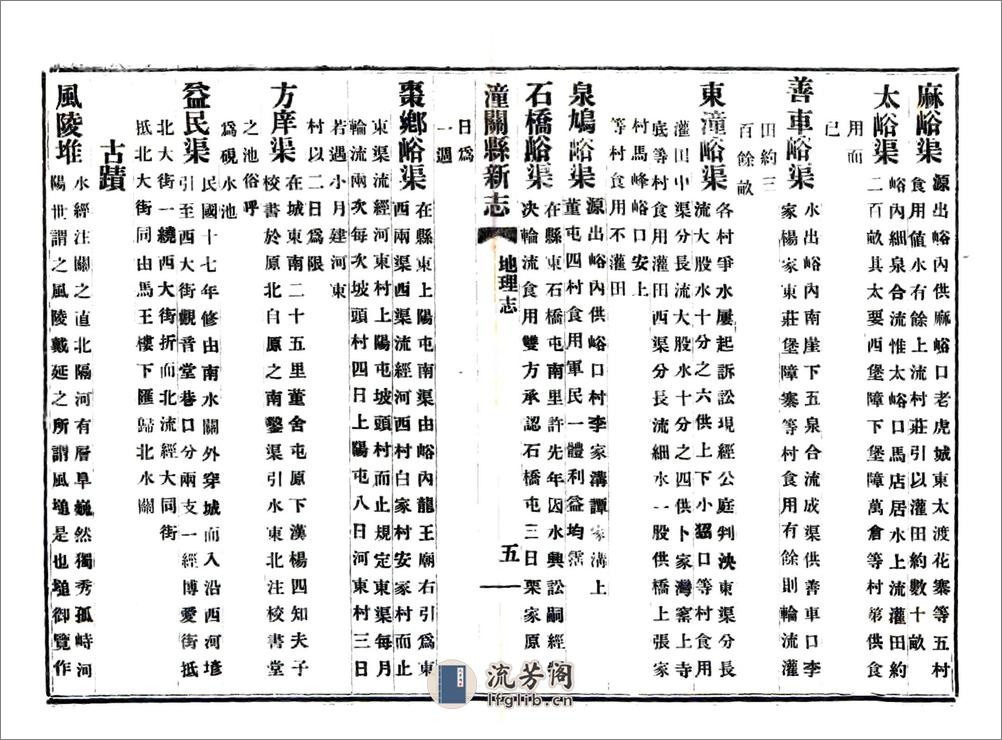 麻峪渠源出峪內供麻峪口老虎城東太渡花寨等五村
食用值水有餘上流村莊引以灌田約數十畝
太峪渠峪內細泉合流惟太峪口馬店居水上流灌田約
二百畝其太要西堡障下堡障萬倉等村第供食
用而
已
善車峪渠水出峪內南崖下五泉合流成渠供善車口李
家楊家東莊堡障寨等村食用有餘則輪流灌
田約三
百餘畝
東潼峪渠各村爭水屢起訴訟現經公庭判決東渠分長
流大股水十分之六供上下小口等村食用
灌田中渠分長流大股水十分之四供卜家灣窰上寺
底等村食用灌田西渠分長流細水一股供橋上張家
村馬峰口安上
等村食用不灌田
泉鳩峪渠源出峪內供峪口村李家溝譚家溝上
董屯四村食用軍民一體利益均霑
石橋峪渠在縣東石橋屯南里許先年因水興訟嗣經
決輪流食用雙方承認石橋屯三日栗家原
潼關縣新志
地理志
五
日爲
一週
棗鄉峪渠在縣東上陽屯南渠由峪內龍王廟右引爲東
西兩渠西渠流經河西村白家村安家村而止
東渠流經河東村上陽屯坡頭村而止規定東渠每月
輪流兩次每次坡頭村四日上陽屯八日河東村三日
若遇小月建河東
村以二日爲限
方庠渠在城東南二十五里董舍屯原下漢楊四知夫子
校書於原北白原之南鑿渠引水東北注校書堂
之池俗呼
爲硯水池
益民渠民國十七年修由南水關外穿城而入沿西河墋
引至西大街觀音堂巷口分兩支一經博愛街抵
北大街一繞西大街折而北流經大同街
抵北大街同由馬王樓下匯歸北水關
古蹟
風陵堆水經注關之直北隔河有層阜巍然獨秀孤峙河
陽世謂之風陵戴延之所謂風塠是也塠御覽作
流芳阁
lfglib.cn